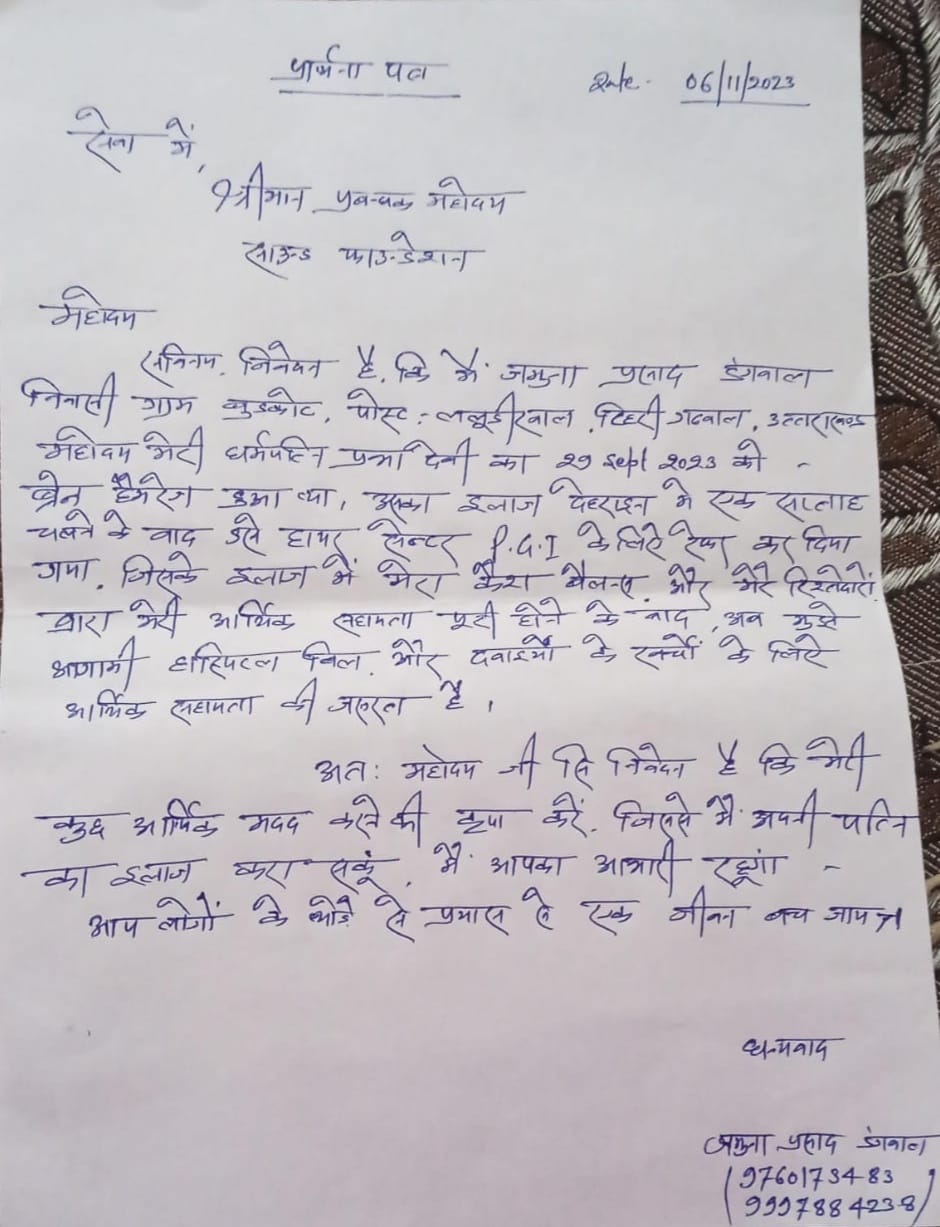 प्रार्थना पत्र
Date- 06/11/2023
सेवा में,
श्रीमान प्रबन्धक महोदय
साउन्ड फाउन्डेशन
महोदय
सविनय निवेदन है, कि मैं जमुना प्रसाद डंगवाल
निवासी ग्राम कुडकोट, पोस्ट:- टिहरी गढवाल, उत्तराखण्ड
महोदय मेरी धर्मपत्नि प्रभा देवी का 29 Sept 2023 को -
ब्रेन हैमरेज हुआ था, उसका इलाज देहरादून मे एक सप्ताह
चलने के बाद उसे हायर सेन्टर P.G.I के लिऐ रेफर कर दिया
गया, जिसके इलाज में मेरा कैश बैलन्स और मेरे रिश्तेदारों
द्वारा मेरी आर्थिक सहायता पूरी होने के बाद, अब मुझे
आगामी हास्पिटल बिल और दवाइयों के खर्चों के लिऐ
आर्थिक सहायता की जरुरत है।
अत: महोदय जी से निवेदन है कि मेरी
कुछ आर्थिक मदद करने की कृपा करें, जिससे मैं अपनी पत्नि
का इलाज करा सकूं, मैं आपका आभारी रहूंगा -
आप लोगों के थोडे से प्रयास से एक जीवन बच जायेगा
धन्यवाद
जमुना प्रसाद डंगवाल
(9760173483
9997884238)